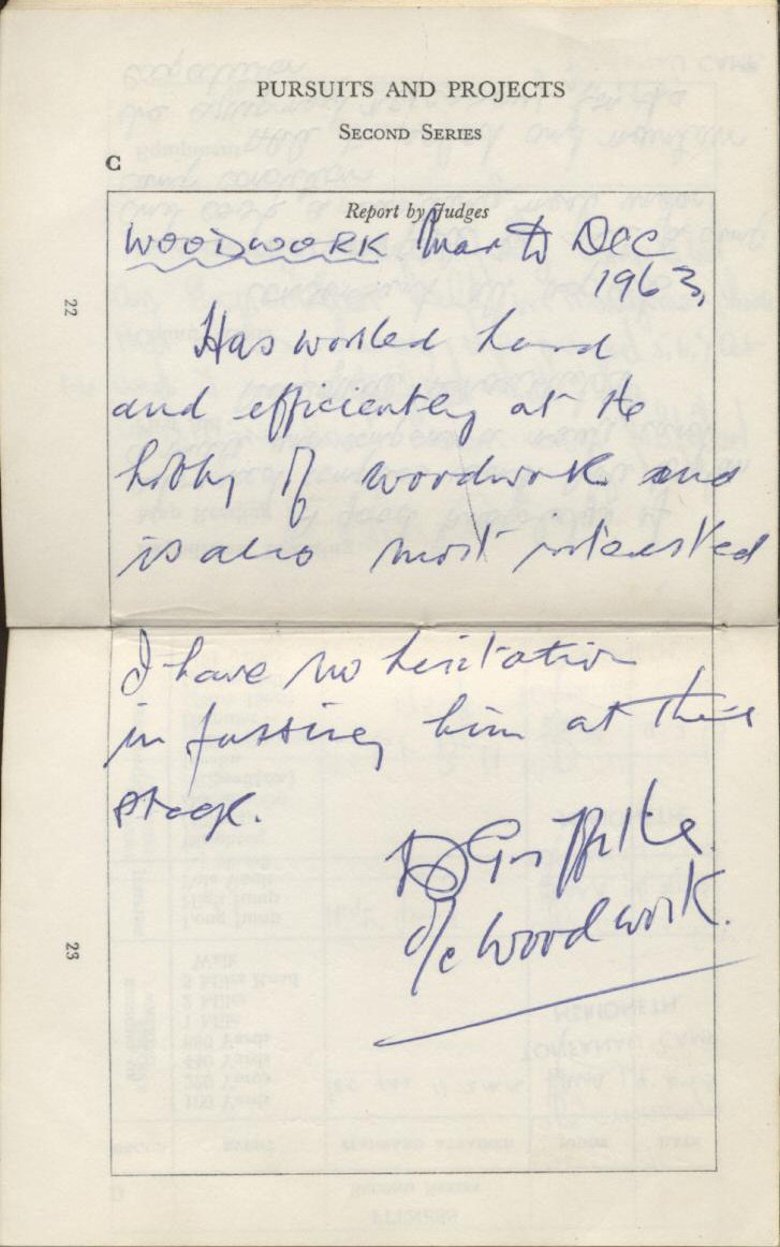 PURSUITS AND PROJECTS
SECOND SERIES
C
Report by Judges
WOODWORK Mar to Dec
1963,
22
Has worked hard
and efficiently at the
hobby of woodwork and
is also most interested
I have no hesitation
in passing him at this
stage.
D Griffiths.
o/c Woodwork.
23